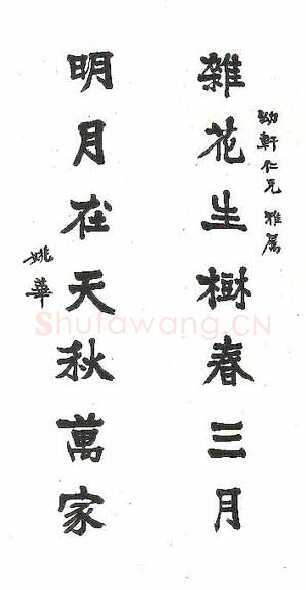 雜花生樹春三月
幼軒仁兄 雅屬
明月在天秋萬家
姚華
Shufawang.CN